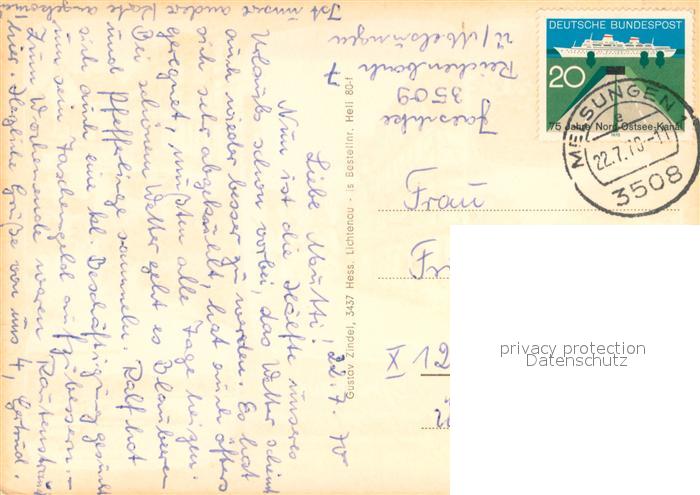 Ist unsere andere Karte angekommen
Liebe Mutti! 22.7.70
Nun ist die Hälfte unseres
Urlaubs schon vorbei, das Wetter scheint
auch wieder besser zu werden. Es hat
sich sehr abgekühlt, hat auch öfters
geregnet, mußten alle Tage heizen.
Bei schönem Wetter geht es Blaubeeren
und Pfefferlinge sammeln. Ralf hat
sich auch eine tel. Beschäftigung gesucht
um sein Taschengeld aufzubessern.-
Zum Wochenende waren
hier. Herzliche Grüße von uns 4, Gertrud.
Gustav Zindel, 3437 Hess. Lichtenau - is Bestellnr. Heli 80-f
3509
Reichenbach
ü/Melsungen
7
DEUTSCHE BUNDESPOST
20
75 Jahre Nord-Ostsee-Kanal
MELSUNGEN 1
e
22.7.70-11
3508
Frau
X 12
privacy protection
Datenschutz